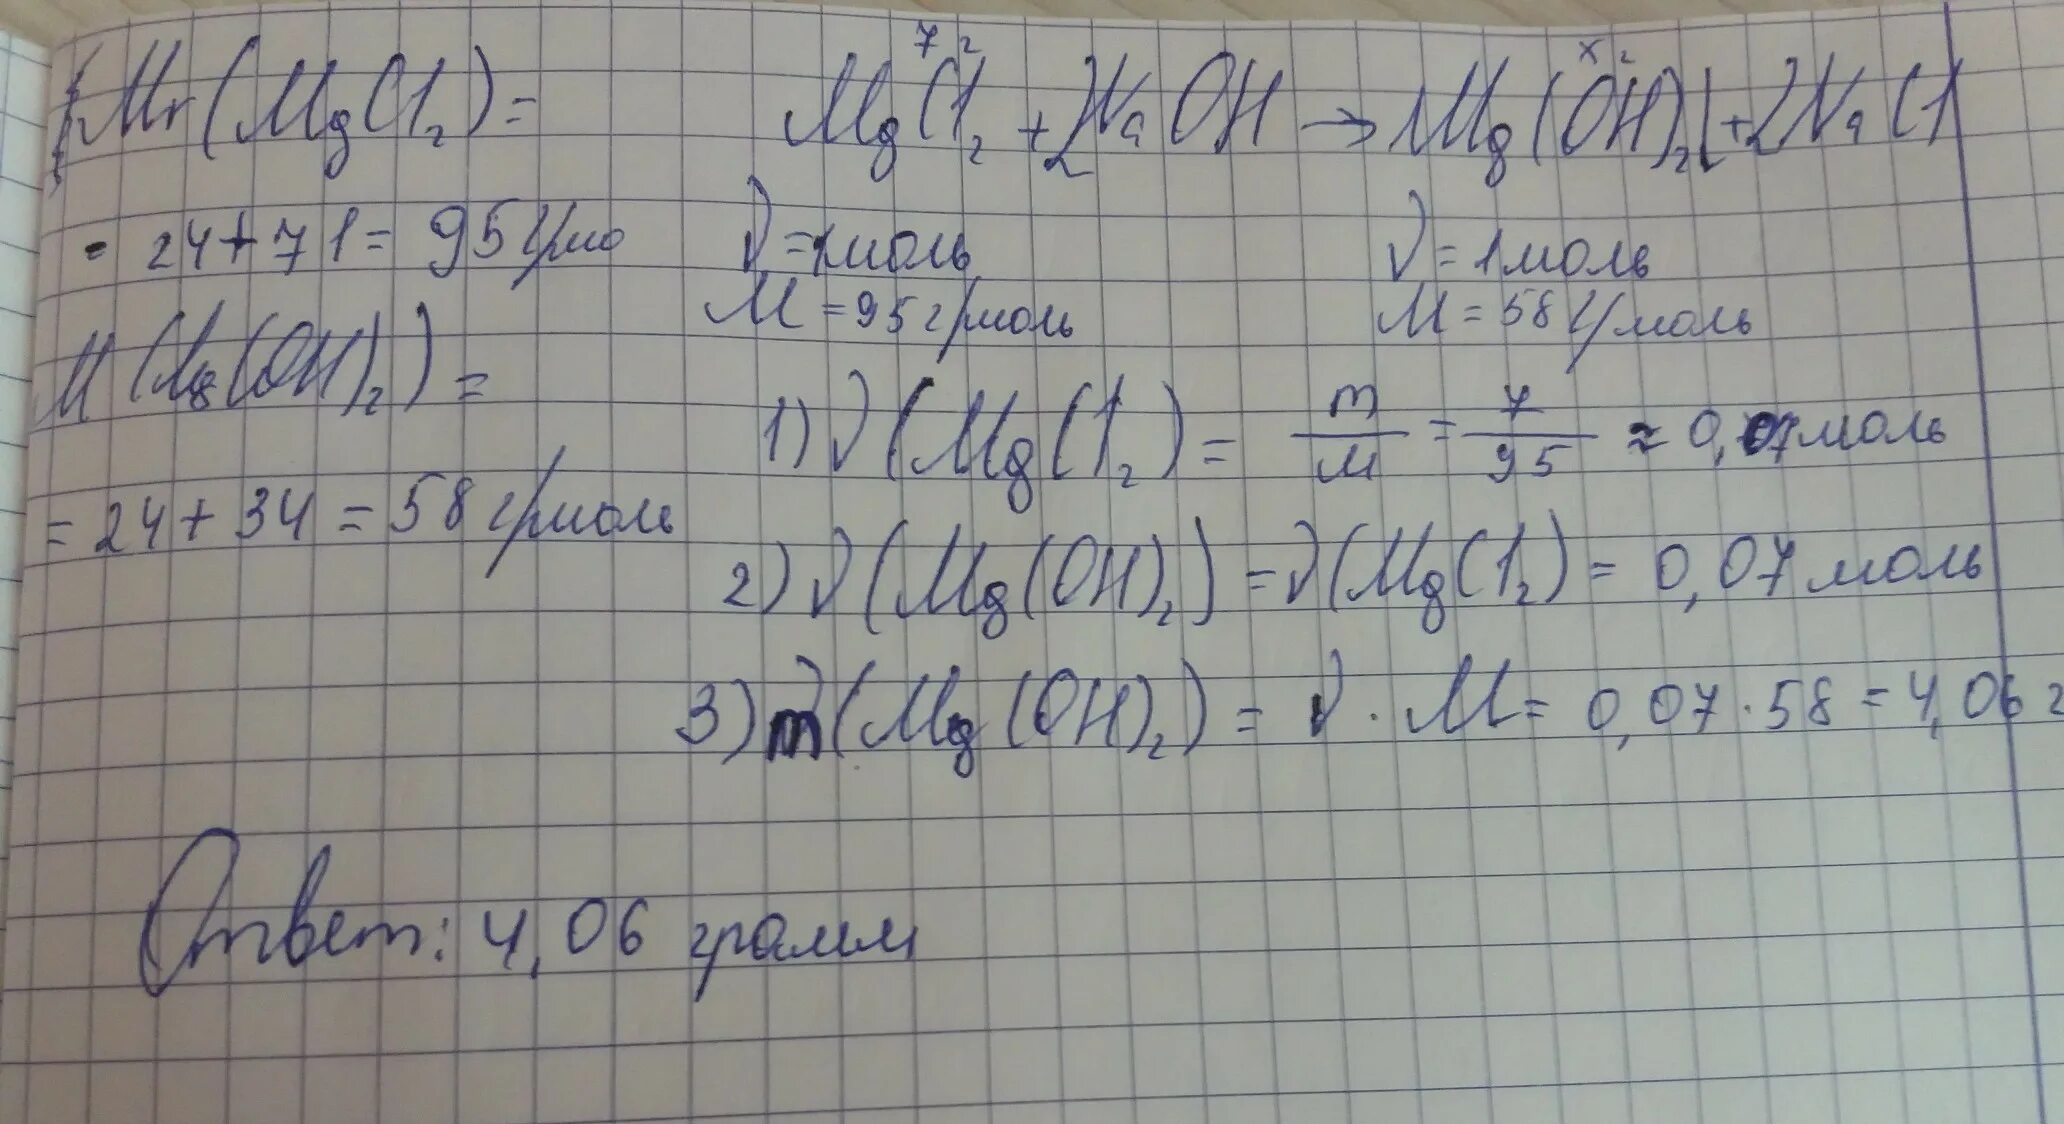 Mr(MgCl₂) =
- 24 + 71 = 95 г/мо
M(Mg(OH)₂) =
= 24 + 34 = 58 г/моль
7 г
x г
MgCl₂ + 2NaOH → Mg(OH)₂↓ + 2NaCl
ν = 1 моль
ν = 1 моль
M = 95 г/моль
M = 58 г/моль
1) ν(MgCl₂) = m/M = 7/95 ≈ 0,07 моль
2) ν(Mg(OH)₂) = ν(MgCl₂) = 0,07 моль
3) m(Mg(OH)₂) = ν · M = 0,07 · 58 = 4,06 г
Ответ: 4,06 грамм